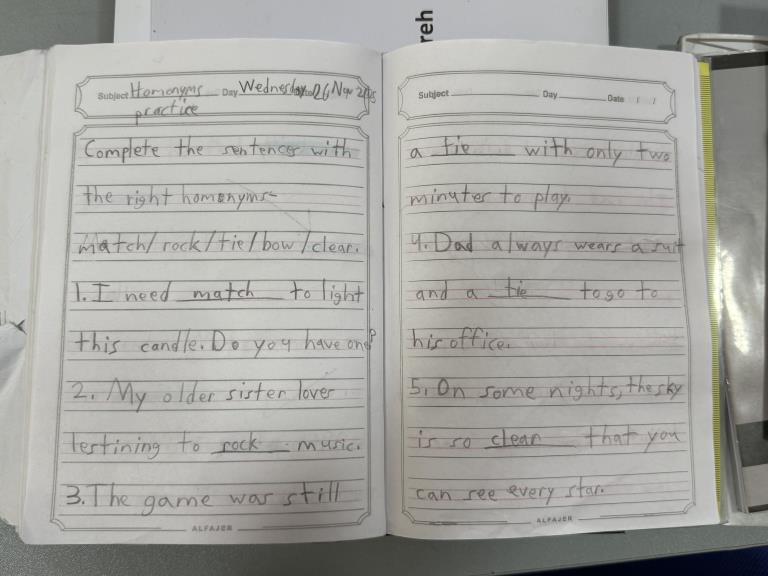 reh
Subject Homonyms Day Wednesday Date 26 Nov 2025
practice
Complete the sentences with
the right homonyms
Match/rock/tie/bow/clear.
1. I need match to light
this candle. Do you have one?
2. My older sister loves
lestining to rock music.
3. The game was still
ALFAJER
Subject Day Date / /
a tie with only two
minutes to play.
4. Dad always wears a suit
and a tie to go to
his office.
5. On some nights, the sky
is so clear that you
can see every star.
ALFAJER